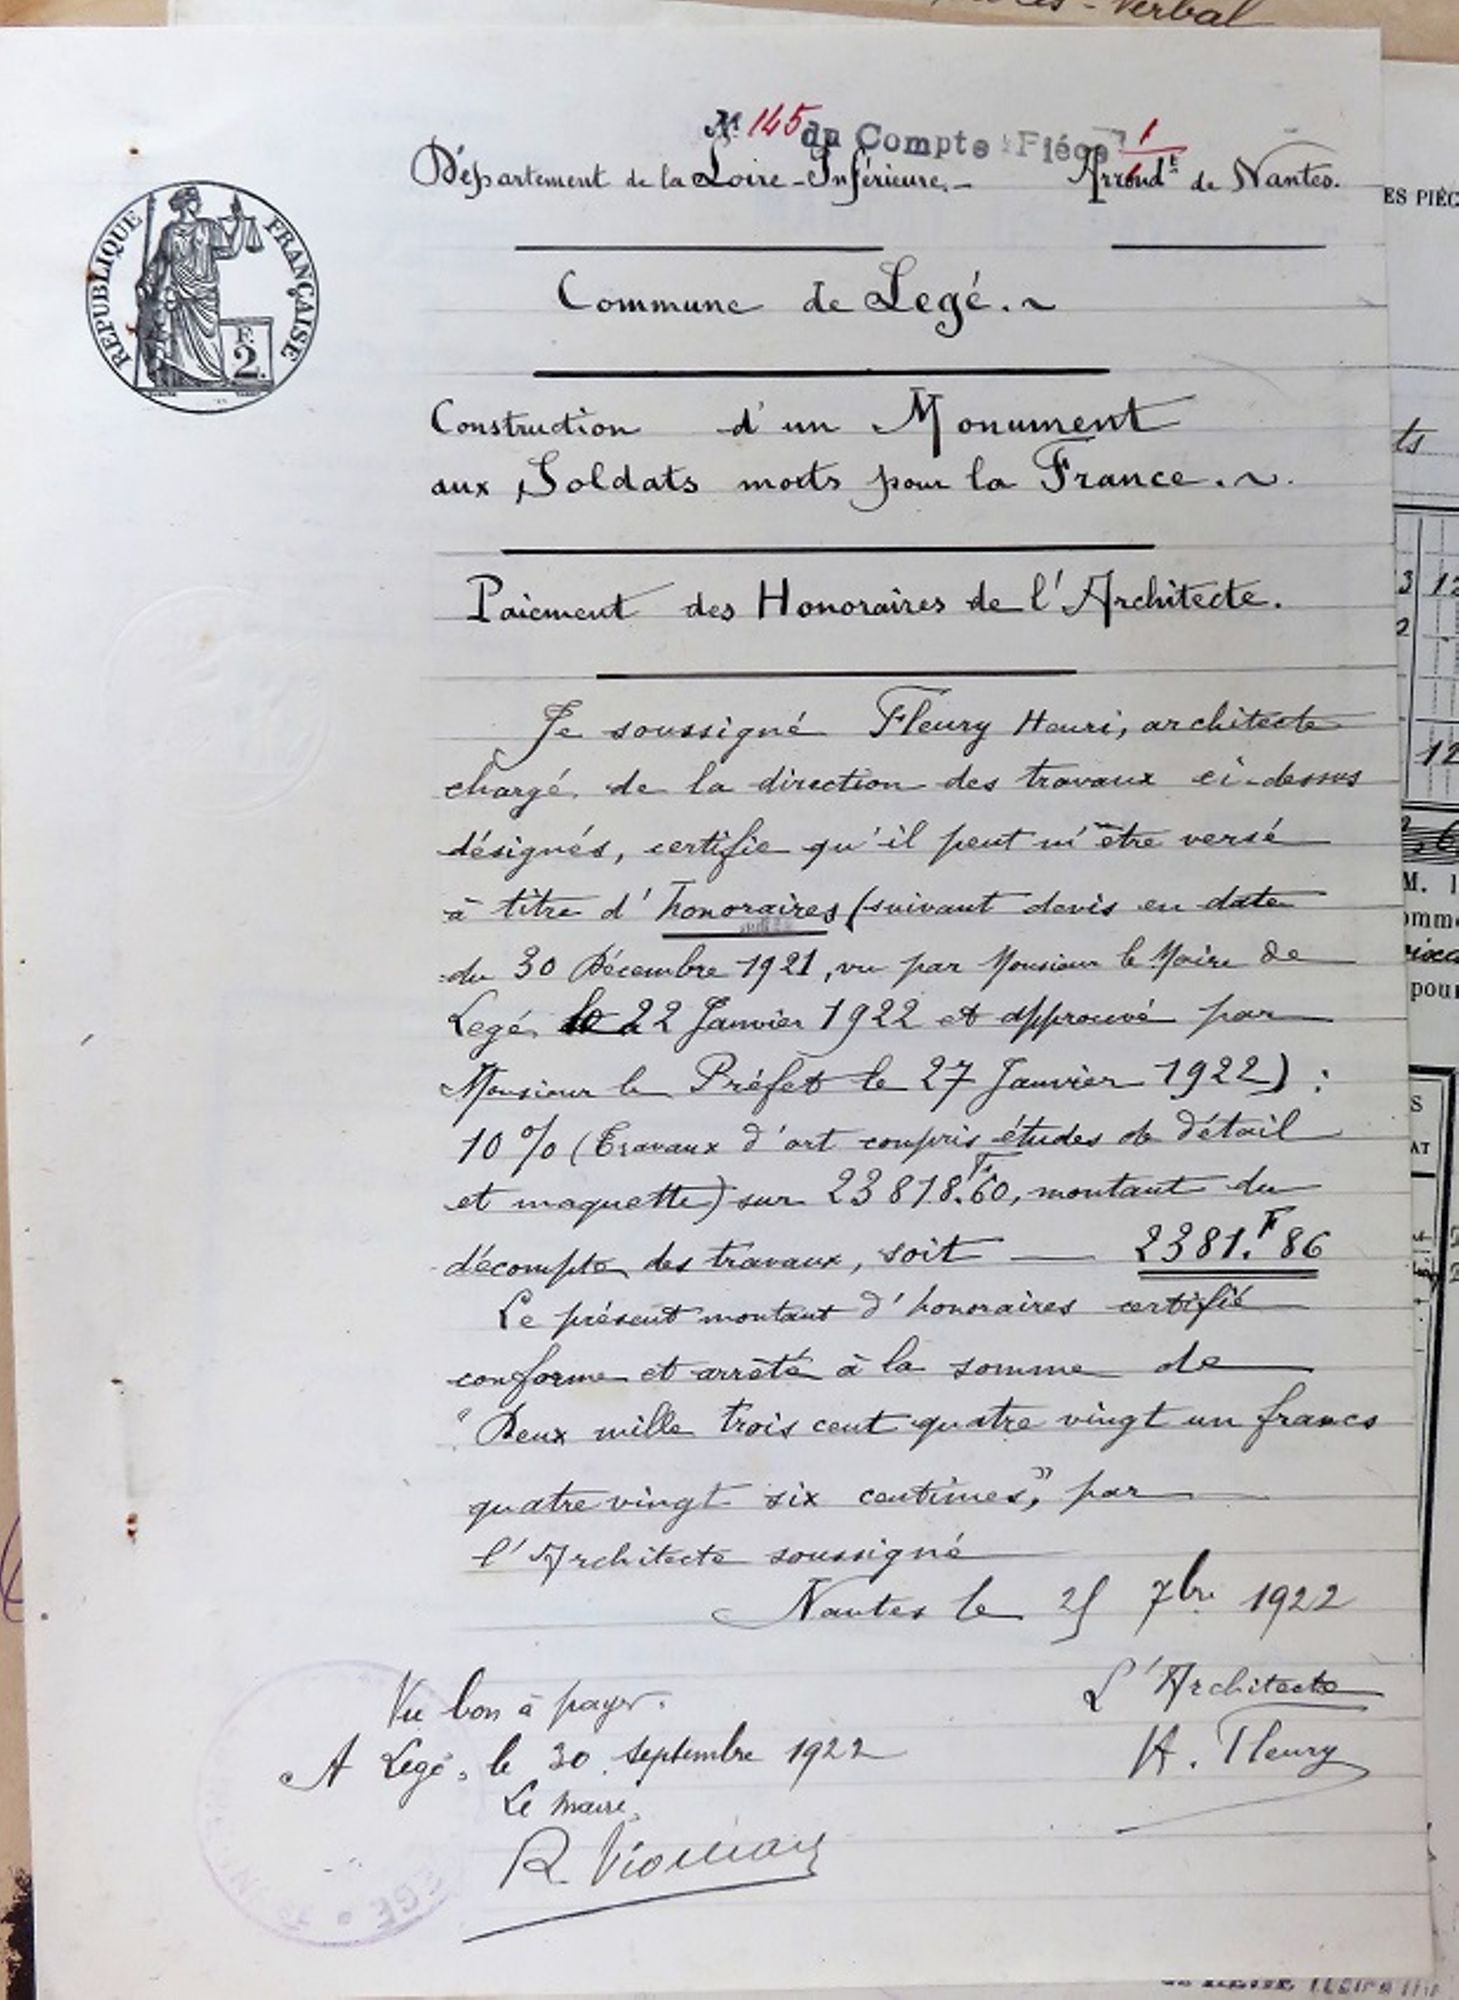 Verbal
N° 145 du Compte Pièce 1/1
Département de la Loire-Inférieure.- Arrondt de Nantes.
RÉPUBLIQUE FRANÇAISE
Fs. 2.
Commune de Legé. ~
Construction d'un Monument
aux Soldats morts pour la France. ~.
Paiement des Honoraires de l'Architecte.
Je soussigné Fleury Henri, architecte
chargé de la direction des travaux ci-dessus
désignés, certifie qu'il peut m'être versé
à titre d'honoraires (suivant devis en date
du 30 Décembre 1921, vu par Monsieur le Maire de
Legé le 22 Janvier 1922 et approuvé par
Monsieur le Préfet le 27 Janvier 1922) :
10 % (Travaux d'art compris études de détail
et maquette) sur 23818.Fs60, montant du
décompte des travaux, soit — 2381.F 86
Le présent montant d'honoraires certifié
conforme et arrêté à la somme de
"Deux mille trois cent quatre vingt un francs
quatre vingt six centimes", par
l'Architecte soussigné
Nantes le 25 7bre 1922
L'Architecte
H. Fleury
Vu bon à payer.
A Legé, le 30 septembre 1922
Le Maire,
ES PIÉC
ts
3 12
2
12
M. 
pour
S
AT